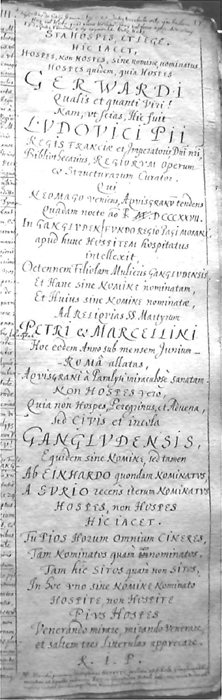 STA HOSPES ET LEGE.
HIC IACET,
HOSPES, NON HOSPES, sine NOMINE, nominatus.
HOSPES quidem, quia HOSPES
GERWARDI
Qualis et quanti Viri!
Nam, ut scias, Hic fuit
LVDOVICI PII
REGIS FRANCIÆ et Imperatoris Dni nri
Bibliothecarius, REGIORUM Operum
& Structurarum Curator.
Qui
NEOMAGO veniens, AQVISGRANV tendens
Quadam nocte aº DCCCXXVII.
In GANGLVDEN FVNDO REGIO PAGI MOSANI
apud hunc HOSPITEM Hospitatus
intellexit
Octennem Filiolam Mulieris GANGLVDENSIS
Et Hanc sine NOMINE nominatam,
Et Huius sine NOMINE nominatæ,
Ad RELIQVIAS SS. Martyrum
PETRI & MARCELLINI
Hoc eodem Anno sub mensem Junium
ROMA allatas,
AQVISGRANI a Paralysi miraculose sanatam.
NON HOSPES vero,
Quia non Hospes, Peregrinus, et Advena,
sed CIVIS et incola
GANGLVDENSIS,
Equidem sine NOMINE, sed tamen
Ab EINHARDO quondam NOMINATUS,
A SURIO recens iterum NOMINATUS
HOSPES, non HOSPES
HIC IACET.
Tu PIOS Horum Omnium CINERES,
Tam Nominatos quam innominatos,
Tam hic SITOS quam non SITOS,
In Hoc uno sine NOMINE Nominato
HOSPITE non HOSPITE
PIVS HOSPES
Venerando mirare, mirando Venerare,
et saltem tres literulas apprecare.
R. I. P.